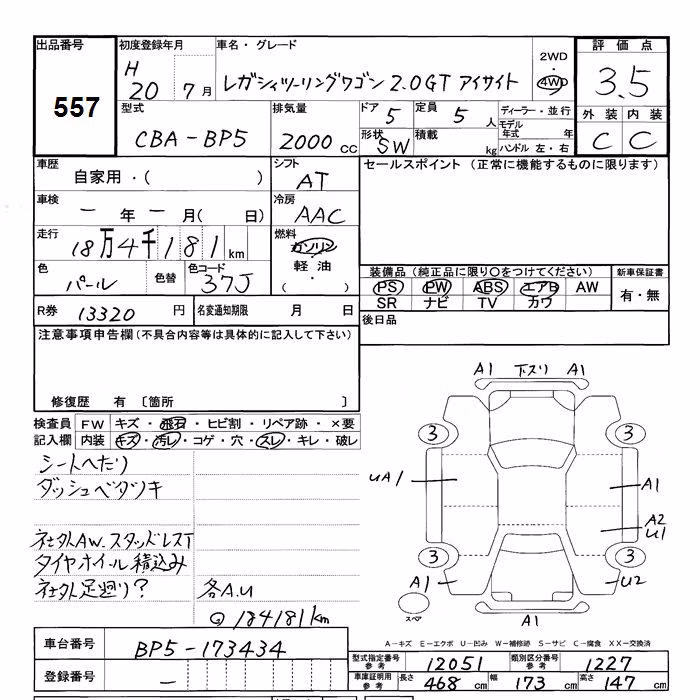 出品番号 初度登録年月 車名・グレード 2WD・4WD 評価点
557 H 20 7月 レガシィツーリングワゴン 2.0GT アイサイト 3.5
型式 排気量 ドア 5 定員 5人 ディーラー・並行 外装 内装
CBA-BP5 2000 CC 形状 SW 積載 kg モデル年式 年 ハンドル 左・右 C C
車歴 シフト セールスポイント (正常に機能するものに限ります)
自家用・( ) AT
車検 冷房
ー年ー月( 日) AAC
走行 燃料
18万4千181km ガソリン
色 色替 色コード 軽油・ 装備品(純正品に限り〇をつけてください) 新車保証書
パール 37J ( ) PS PW ABS エアB AW 有・無
R券 13320 円 名変通知期限 月 日 SR ナビ TV カワ
注意事項申告欄(不具合内容等は具体的に記入して下さい) 後日品
修復歴 有 〔箇所 〕
検査員 FW キズ・飛石・ヒビ割・リペア跡・×要
記入欄 内装 キズ・汚レ・コゲ・穴・スレ・キレ・破レ
シートへたり
ダッシュベタツキ
社外AW.スタッドレスT
タイヤホイル積込み
社外足廻り? 各A.U
184181km
A1 下スリ A1
3 3
UA1 A1
A2
U1
3 3
A1 U2
スペア A1
A-キズ E-エクボ U-凹み W-補修跡 S-サビ C-腐食 XX-交換済
車台番号 BP5-173434
型式指定番号 参考 12051 類別区分番号 参考 1227
登録番号 ー
車庫証明用 参考 長さ 468 cm 幅 173 cm 高さ 147 cm